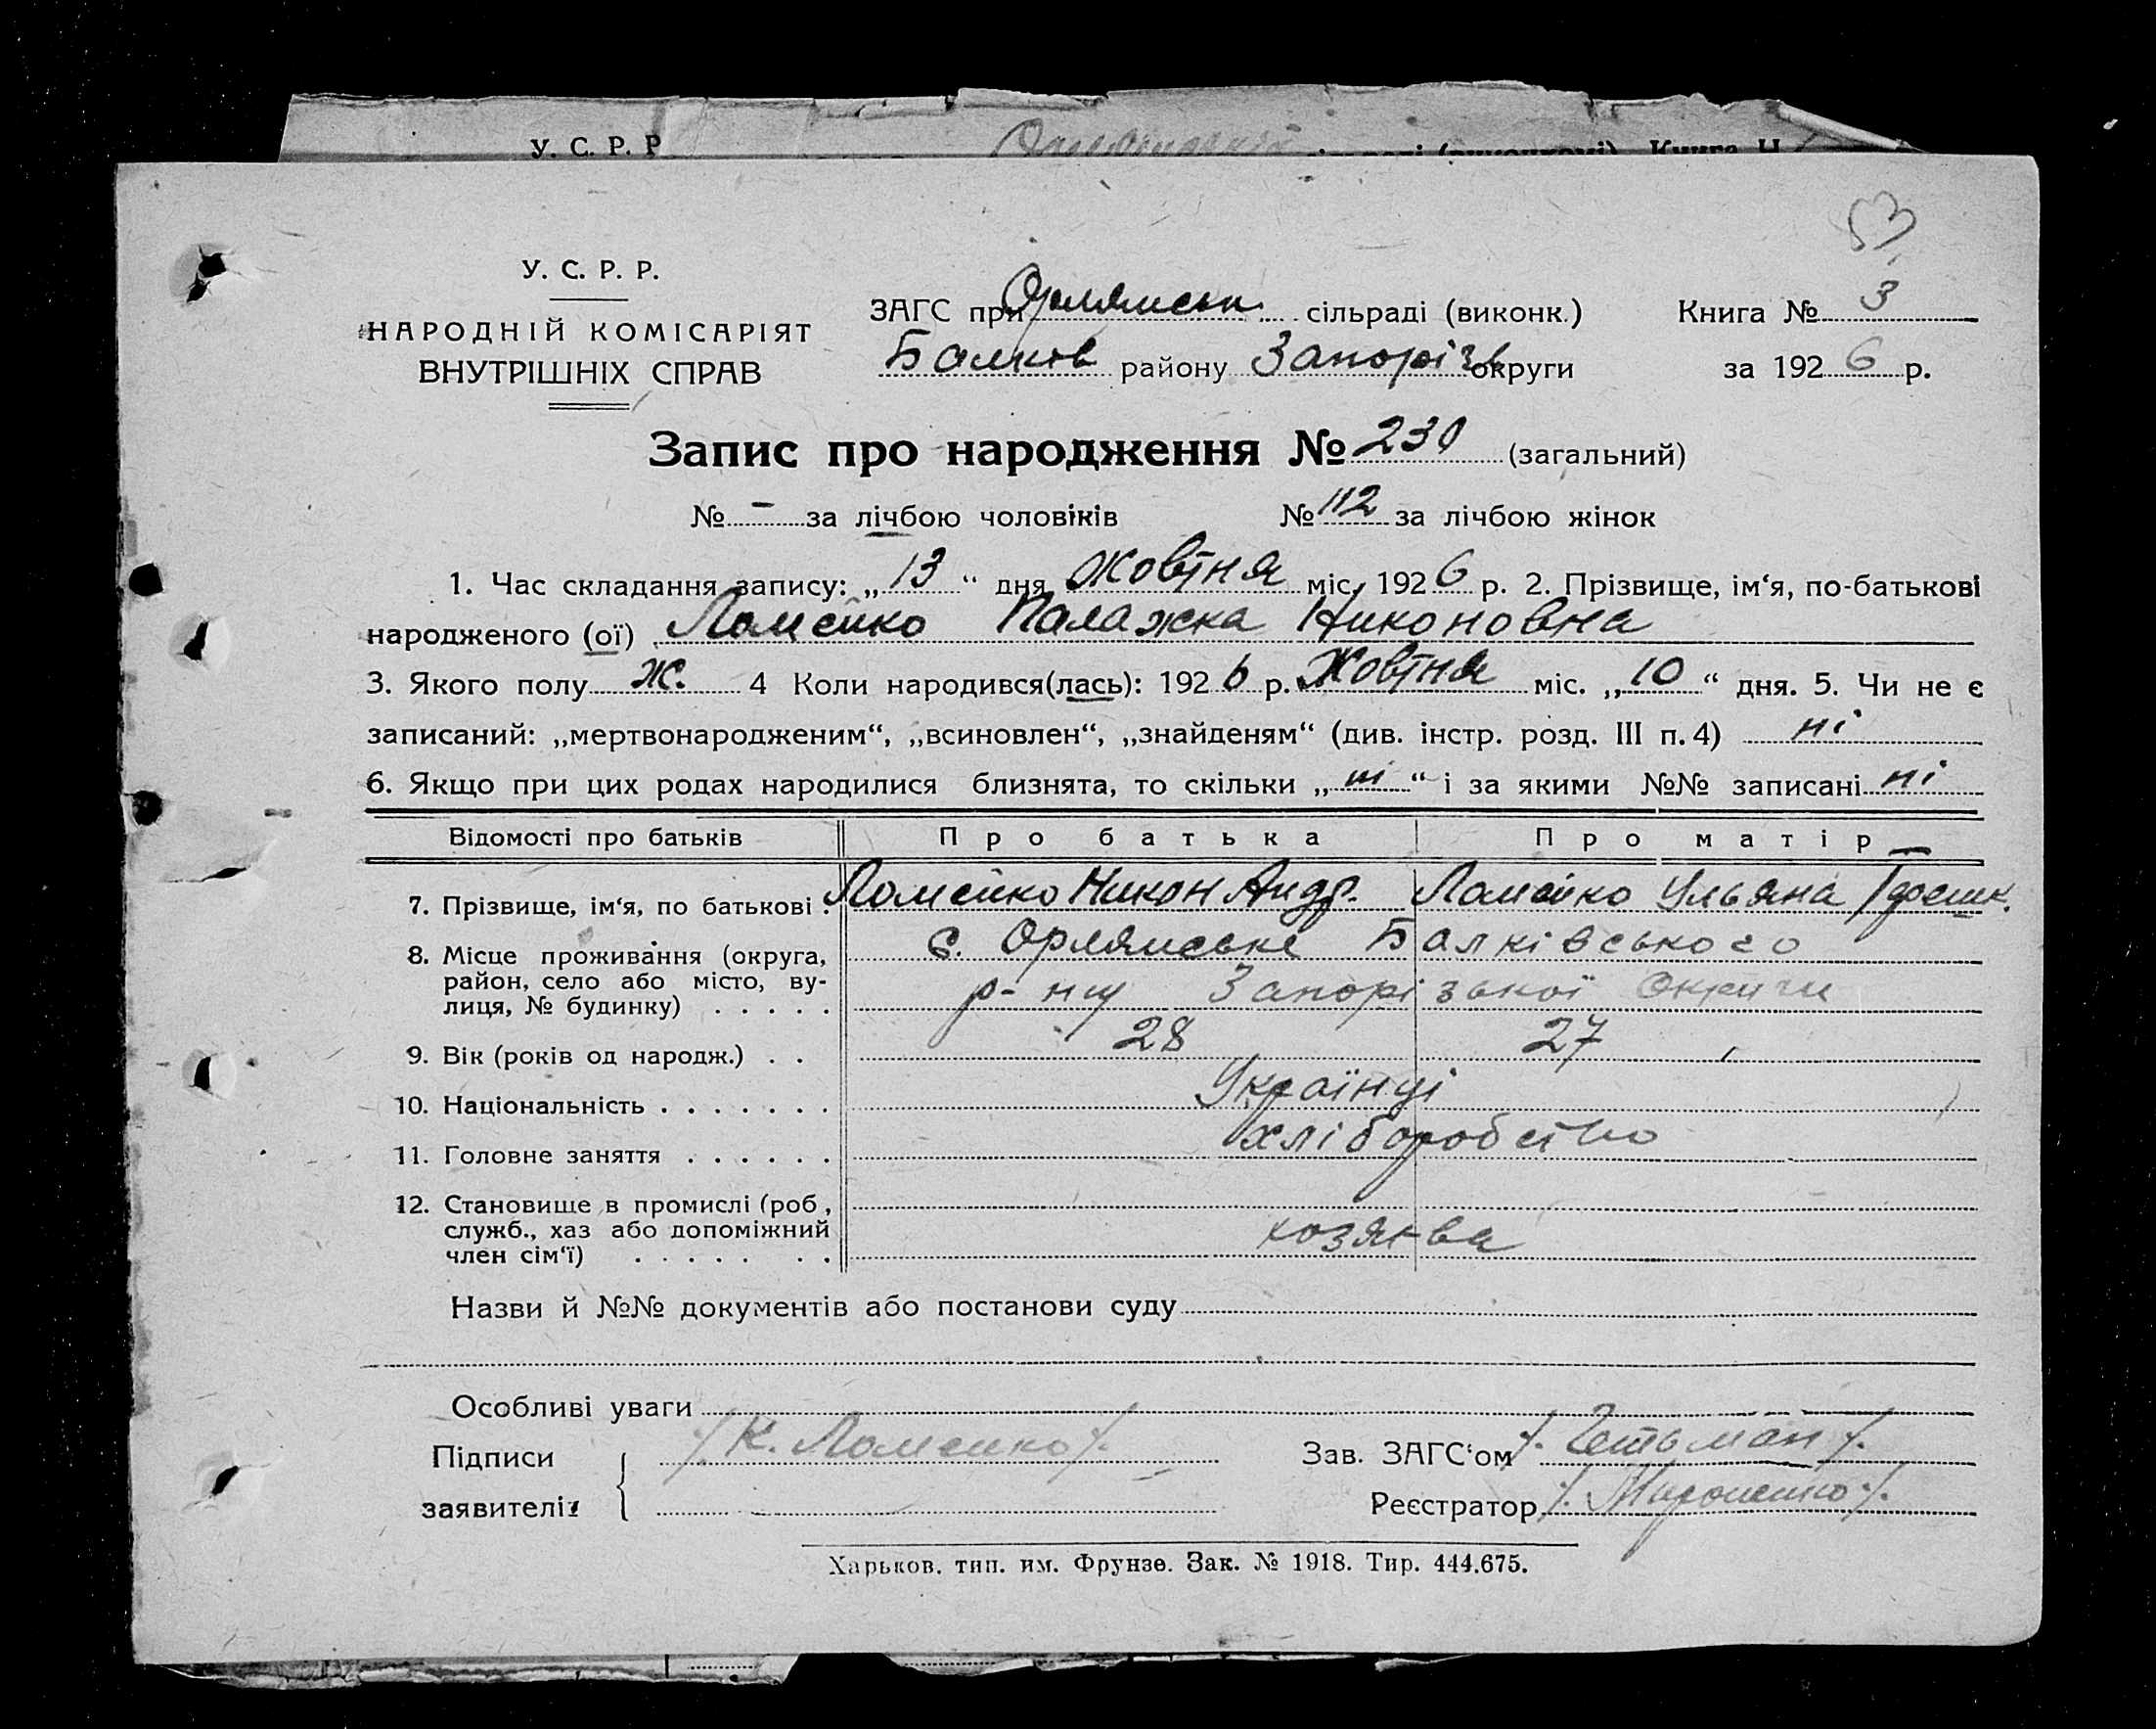 У. С. Р. Р
53
У. С. Р. Р.
НАРОДНІЙ КОМІСАРІЯТ
ВНУТРІШНІХ СПРАВ
ЗАГС при Орлянськ сільраді (виконк.) Книга № 3
Балків району Запоріз округи за 1926 р.
Запис про народження № 230 (загальний)
№ - за лічбою чоловіків № 112 за лічбою жінок
1. Час складання запису: „13“ дня Жовтня міс. 1926 р. 2. Прізвище, ім‘я, по-батькові
народженого (ої) Ломейко Палажка Никоновна
3. Якого полу ж. 4 Коли народився(лась): 1926 р. Жовтня міс. „10“ дня. 5. Чи не є
записаний: „мертвонародженим“, „всиновлен“, „знайденям“ (див. інстр. розд. III п. 4) ні
6. Якщо при цих родах народилися близнята, то скільки „ні“ і за якими №№ записані ні
Відомості про батьків Про батька Про матір
7. Прізвище, ім‘я, по батькові. Ломейко Никон Андр. Ломейко Ульяна
8. Місце проживання (округа, с. Орлянське Балківського
район, село або місто, ву-
лиця, № будинку) . . . . . р-ну Запорізької Округи
9. Вік (років од народж.) . . 28 27
10. Національність . . . . . . . Українці
11. Головне заняття . . . . . . хліборобство
12. Становище в промислі (роб,
служб., хаз або допоміжний хозяїва
член сім‘ї) . . . . . . .
Назви й №№ документів або постанови суду
Особливі уваги
Підписи /К. Ломейко/. Зав. ЗАГС‘ом /. Гетьман /.
заявителів Реєстратор /. Мироненко /.
Харьков. тип. им. Фрунзе. Зак. № 1918. Тир. 444.675.